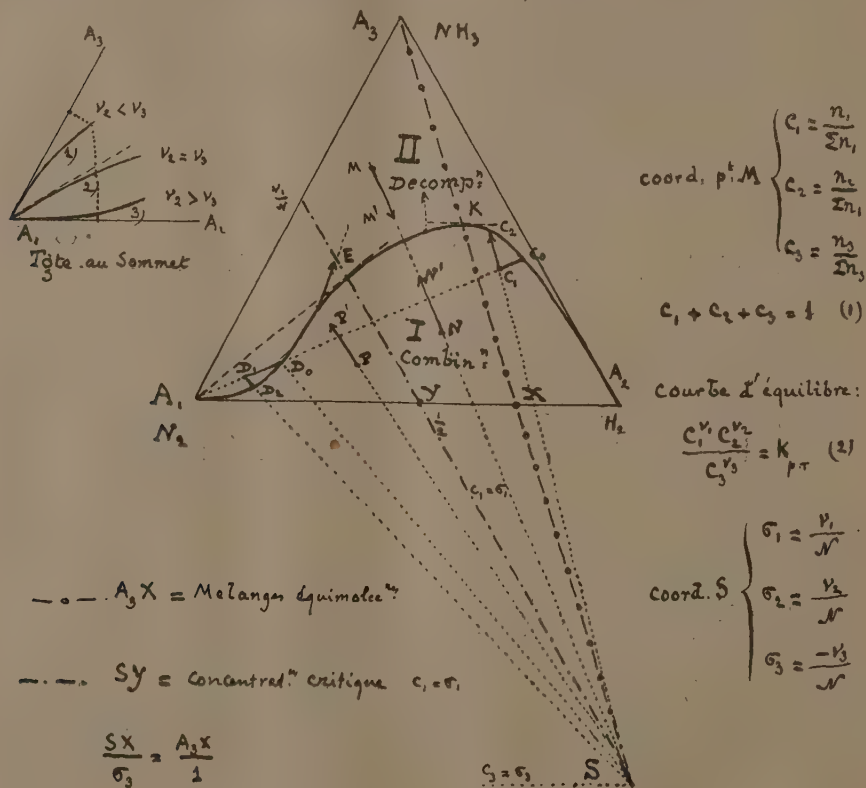 A₃
ν₂ < ν₃
1)
ν₂ = ν₃
2)
ν₂ > ν₃
3)
A₁
A₂
Tgte au Sommet
A₃ NH₃
II
Decompⁿ
M
M'
K
C₂
C₀
C₁
E
N'
N
B'
B
I
Combinⁿ
D₁
D₀
D₂
A₁
N₂
Y
1/2
X
A₂
H₂
C₁ = σ₁
coord. pᵗ M
C₁ = n₁/Σn₁
C₂ = n₂/Σn₁
C₃ = n₃/Σn₃
C₁ + C₂ + C₃ = 1 (1)
Courbe d'équilibre:
C₁^ν₁ C₂^ν₂ / C₃^ν₃ = K pT (2)
coord. S
σ₁ = ν₁/N
σ₂ = ν₂/N
σ₃ = -ν₃/N
A₃X = Melanges équimoleᵉʳˢ
SY = Concentratⁿ critique C₁ = σ₁
SX/σ₃ = A₃X/1
C₃ = σ₃
S